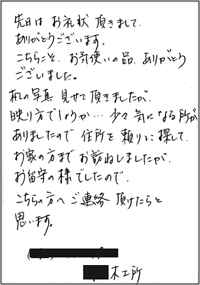 先日は お礼状 頂きまして、
ありがとうございます。
こちらこそ、お気使いの品、ありがとう
ございました。
机の写真 見せて頂きましたが、
映り方でしょうか… 少々 気になる所が
ありましたので 住所を頼りに探して
お家の方まで お訪ねしましたが、
お留守の様でしたので、
こちらの方へ ご連絡 頂けたらと
思います。
木工所